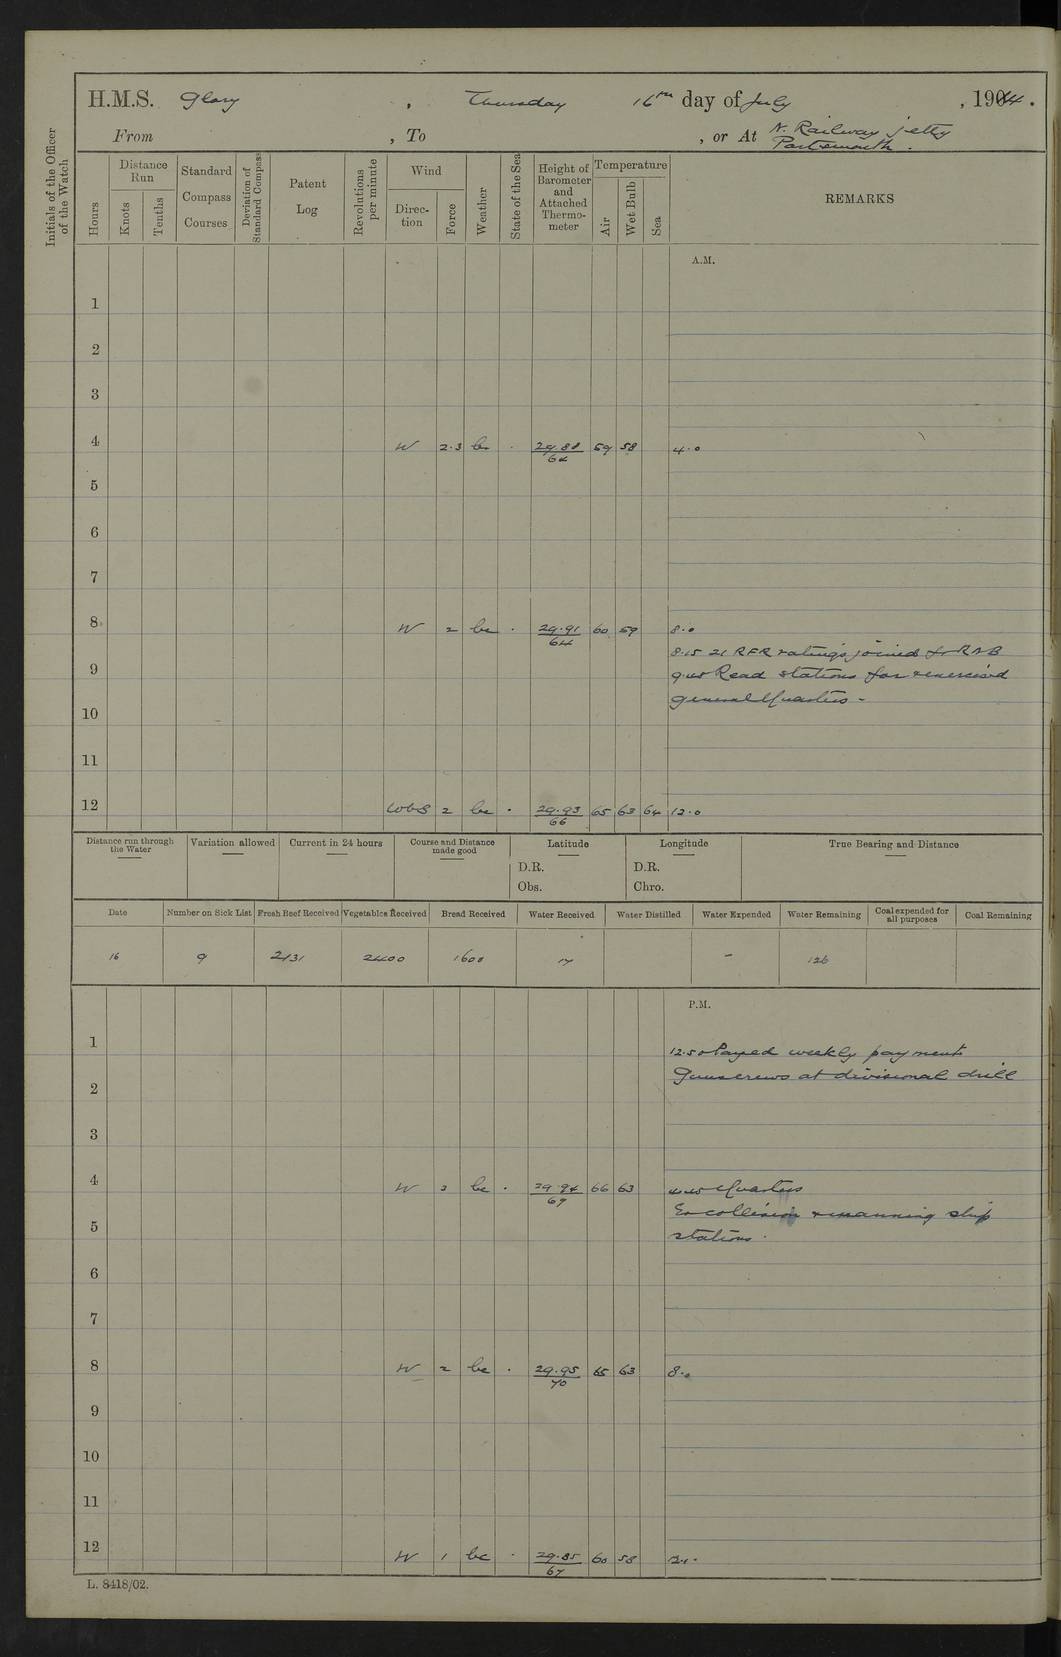 H.M.S. Glory , Thursday 16th day of July , 1914.
From , To , or At N. Railway jetty
Portsmouth.
Initials of the Officer
of the Watch
Hours
Distance
Run
Knots
Tenths
Standard
Compass
Courses
Deviation of
Standard Compass
Patent
Log
Revolutions
per minute
Wind
Direc-
tion
Force
Weather
State of the Sea
Height of
Barometer
and
Attached
Thermo-
meter
Temperature
Air
Wet Bulb
Sea
REMARKS
A.M.
1
2
3
4 W 2.3 bc . 29.88 59 58 4.0
64
5
6
7
8 W 2 bc . 29.91 60 59 8.0
64
8.15 21 RFR ratings joined fr RNB
9 9.45 Read stations for & exercised
general Quarters -
10
11
12 WbS 2 bc . 29.93 65 63 64 12.0
66
Distance run through
the Water
Variation allowed
Current in 24 hours
Course and Distance
made good
Latitude
D.R.
Obs.
Longitude
D.R.
Chro.
True Bearing and Distance
Date Number on Sick List Fresh Beef Received Vegetables Received Bread Received Water Received Water Distilled Water Expended Water Remaining Coal expended for all purposes Coal Remaining
16 9 2131 2400 1600 17 - 126
P.M.
1 12.50 Payed weekly payments
2 Guns crews at divisional drill
3
4 W 3 bc . 29.94 66 63 4.45 Quarters
69
Ex collision & manning ship
5 stations.
6
7
8 W 2 bc . 29.95 65 63 8.0
70
9
10
11
12 W 1 bc . 29.85 60 58
67
L. 8418/02.